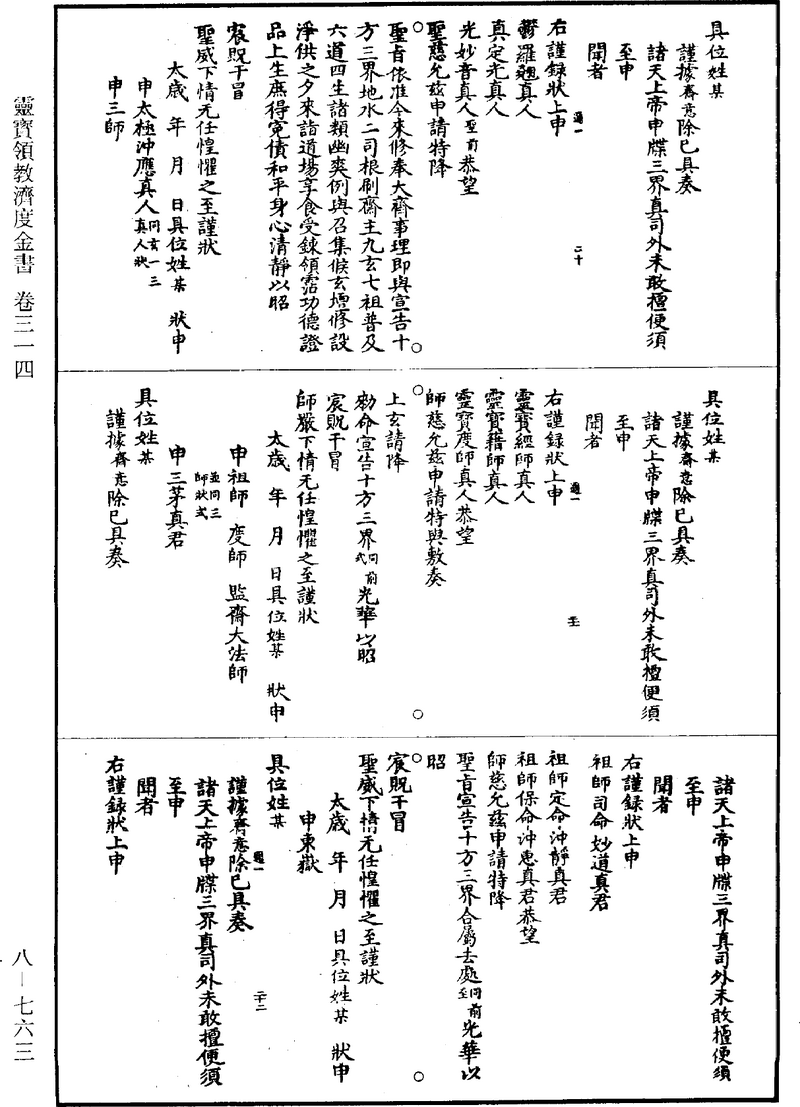 靈寶領教濟度金書 卷三一四
八—七六三
具位姓某
謹據齋意除已具奏
諸天上帝申牒三界真司外未敢擅便須
至申
聞者
右謹錄狀上申
二十
鬱羅翹真人
真定光真人
光妙音真人聖前恭望
聖慈允茲申請特降
聖旨依准今來修奉大齋事理即與宣告十
方三界地水二司根刷齋主九玄七祖普及
六道四生諸類幽爽例與召集候玄壇修設
淨供之夕來詣道場享食受鍊領霑功德證
品上生庶得冤債和平身心清靜以昭
宸貺干冒
聖威下情无任惶懼之至謹狀
太歲 年 月 日具位姓某 狀申
申太極沖應真人同玄一三真人狀
申三師
具位姓某
謹據齋意除已具奏
諸天上帝申牒三界真司外未敢擅便須
至申
聞者
右謹錄狀上申
靈寶經師真人
靈寶籍師真人
靈寶度師真人恭望
師慈允茲申請特與敷奏
上玄請降
勑命宣告十方三界同前式光華以昭
宸貺干冒
師嚴下情无任惶懼之至謹狀
太歲 年 月 日具位姓某 狀申
申祖師 度師 監齋大法師
並同三師狀式
申三茅真君
具位姓某
謹據齋意除已具奏
諸天上帝申牒三界真司外未敢擅便須
至申
聞者
右謹錄狀上申
祖師司命妙道真君
祖師定命沖靜真君
祖師保命沖惠真君恭望
師慈允茲申請特降
聖旨宣告十方三界合屬去處同前至光華以
昭
宸貺干冒
聖威下情无任惶懼之至謹狀
太歲 年 月 日具位姓某 狀申
申東嶽
具位姓某
二十二
謹據齋意除已具奏
諸天上帝申牒三界真司外未敢擅便須
至申
聞者
右謹錄狀上申